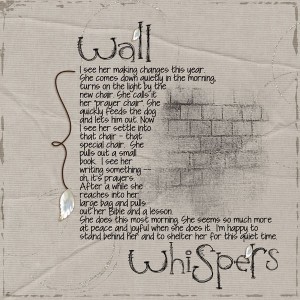 Wall
I see her making changes this year.
She comes down quietly in the morning,
turns on the light by the
new chair. She calls it
her "prayer chair". She
quickly feeds the dog
and lets him out. Now
I see her settle into
that chair - that
special chair. She
pulls out a small
book. I see her
writing something —
oh, it's prayers.
After a while she
reaches into her
large bag and pulls
out her Bible and a lesson.
She does this most morning. She seems so much more
at peace and joyful when she does it. I'm happy to
stand behind her and to shelter her for this quiet time.
Whispers